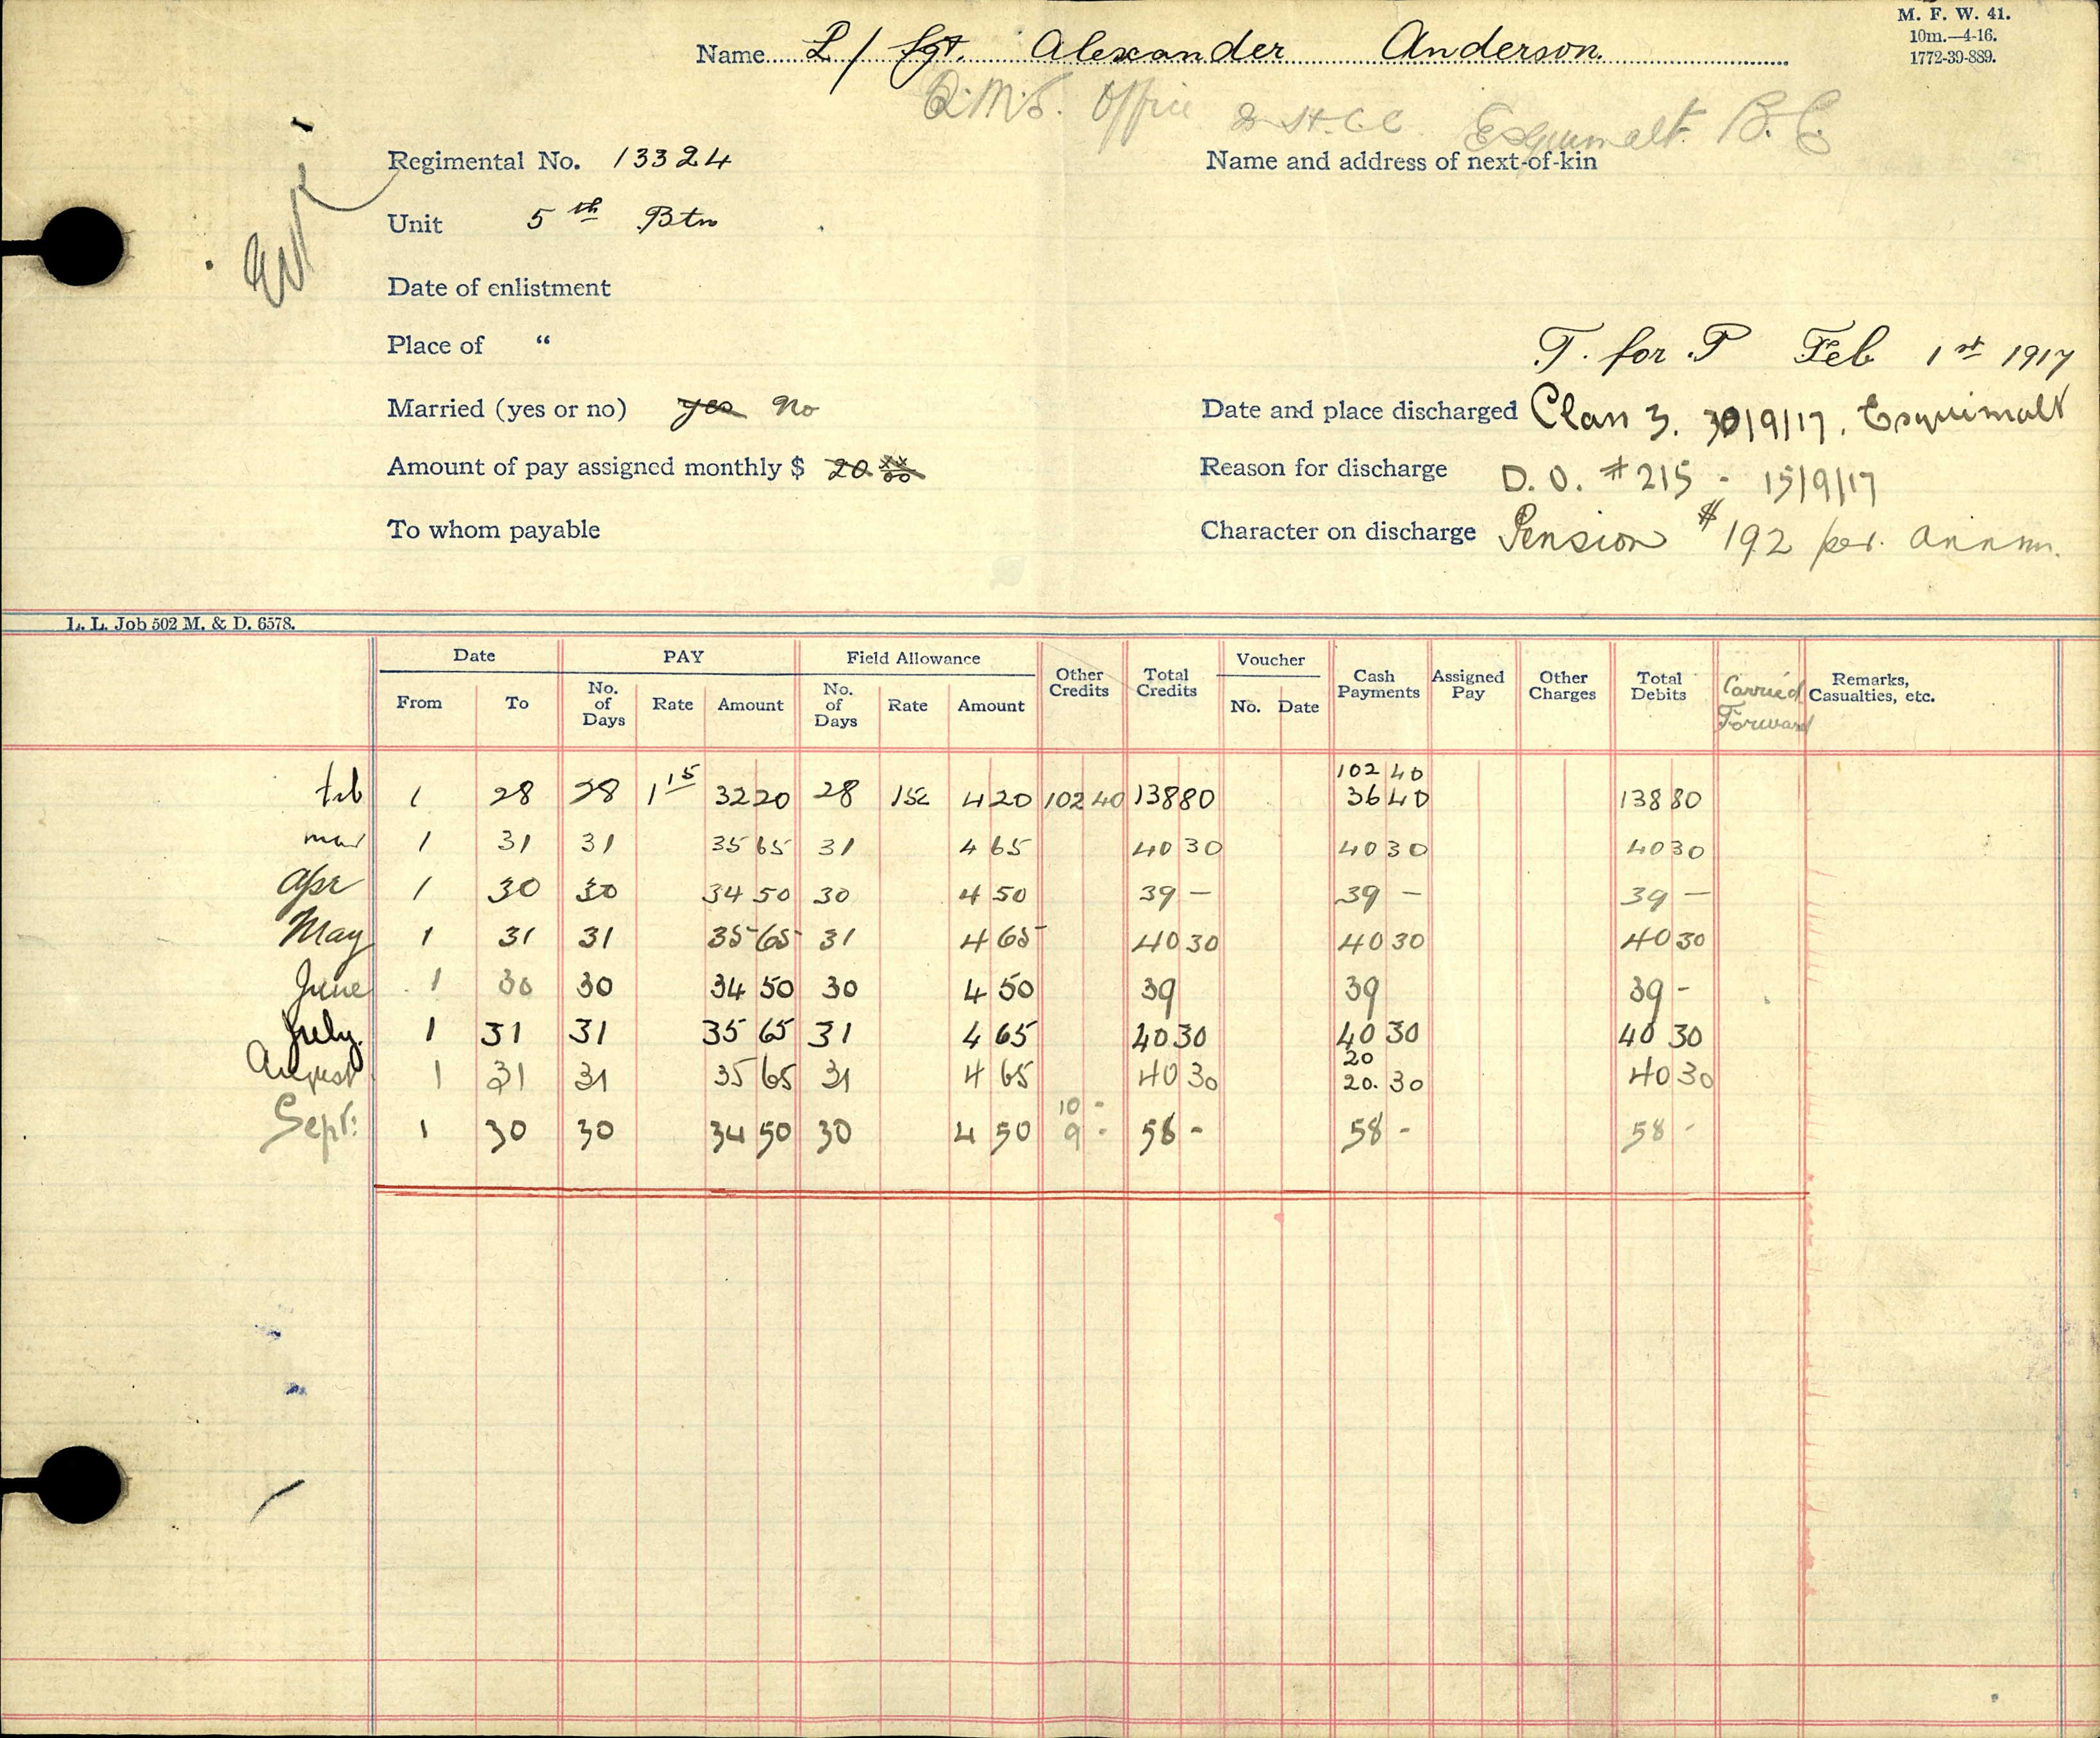 M. F. W. 41.
10m.—4-16.
1772-39-889.
Name L/Sgt. Alexander Anderson.
Q.M.S. Office Esquimalt. B.C.
Regimental No. 13324
Name and address of next-of-kin
Unit 5th Btn
Date of enlistment
Place of "
T. for P Feb 1st 1917
Married (yes or no) yes No
Date and place discharged Class 3. 30/9/17. Esquimalt
Amount of pay assigned monthly $ 20
Reason for discharge D.O. #215 - 15/9/17
To whom payable
Character on discharge Pension $192 per. annum.
L. L. Job 502 M. & D. 6578.
Date PAY Field Allowance Other Credits Total Credits Voucher Cash Payments Assigned Pay Other Charges Total Debits Carried Forward Remarks, Casualties, etc.
From To No. of Days Rate Amount No. of Days Rate Amount No. Date
102 40
Feb 1 28 28 1 15 32 20 28 15c 4 20 102 40 138 80 36 40 138 80
mar 1 31 31 35 65 31 4 65 40 30 40 30 40 30
Apr 1 30 30 34 50 30 4 50 39 — 39 — 39 —
May 1 31 31 35 65 31 4 65 40 30 40 30 40 30
June 1 30 30 34 50 30 4 50 39 39 39 -
July. 1 31 31 35 65 31 4 65 40 30 40 30 40 30
20
August 1 31 31 35 65 31 4 65 40 30 20. 30 40 30
10 -
Sept: 1 30 30 34 50 30 4 50 9 - 58 - 58 - 58 -